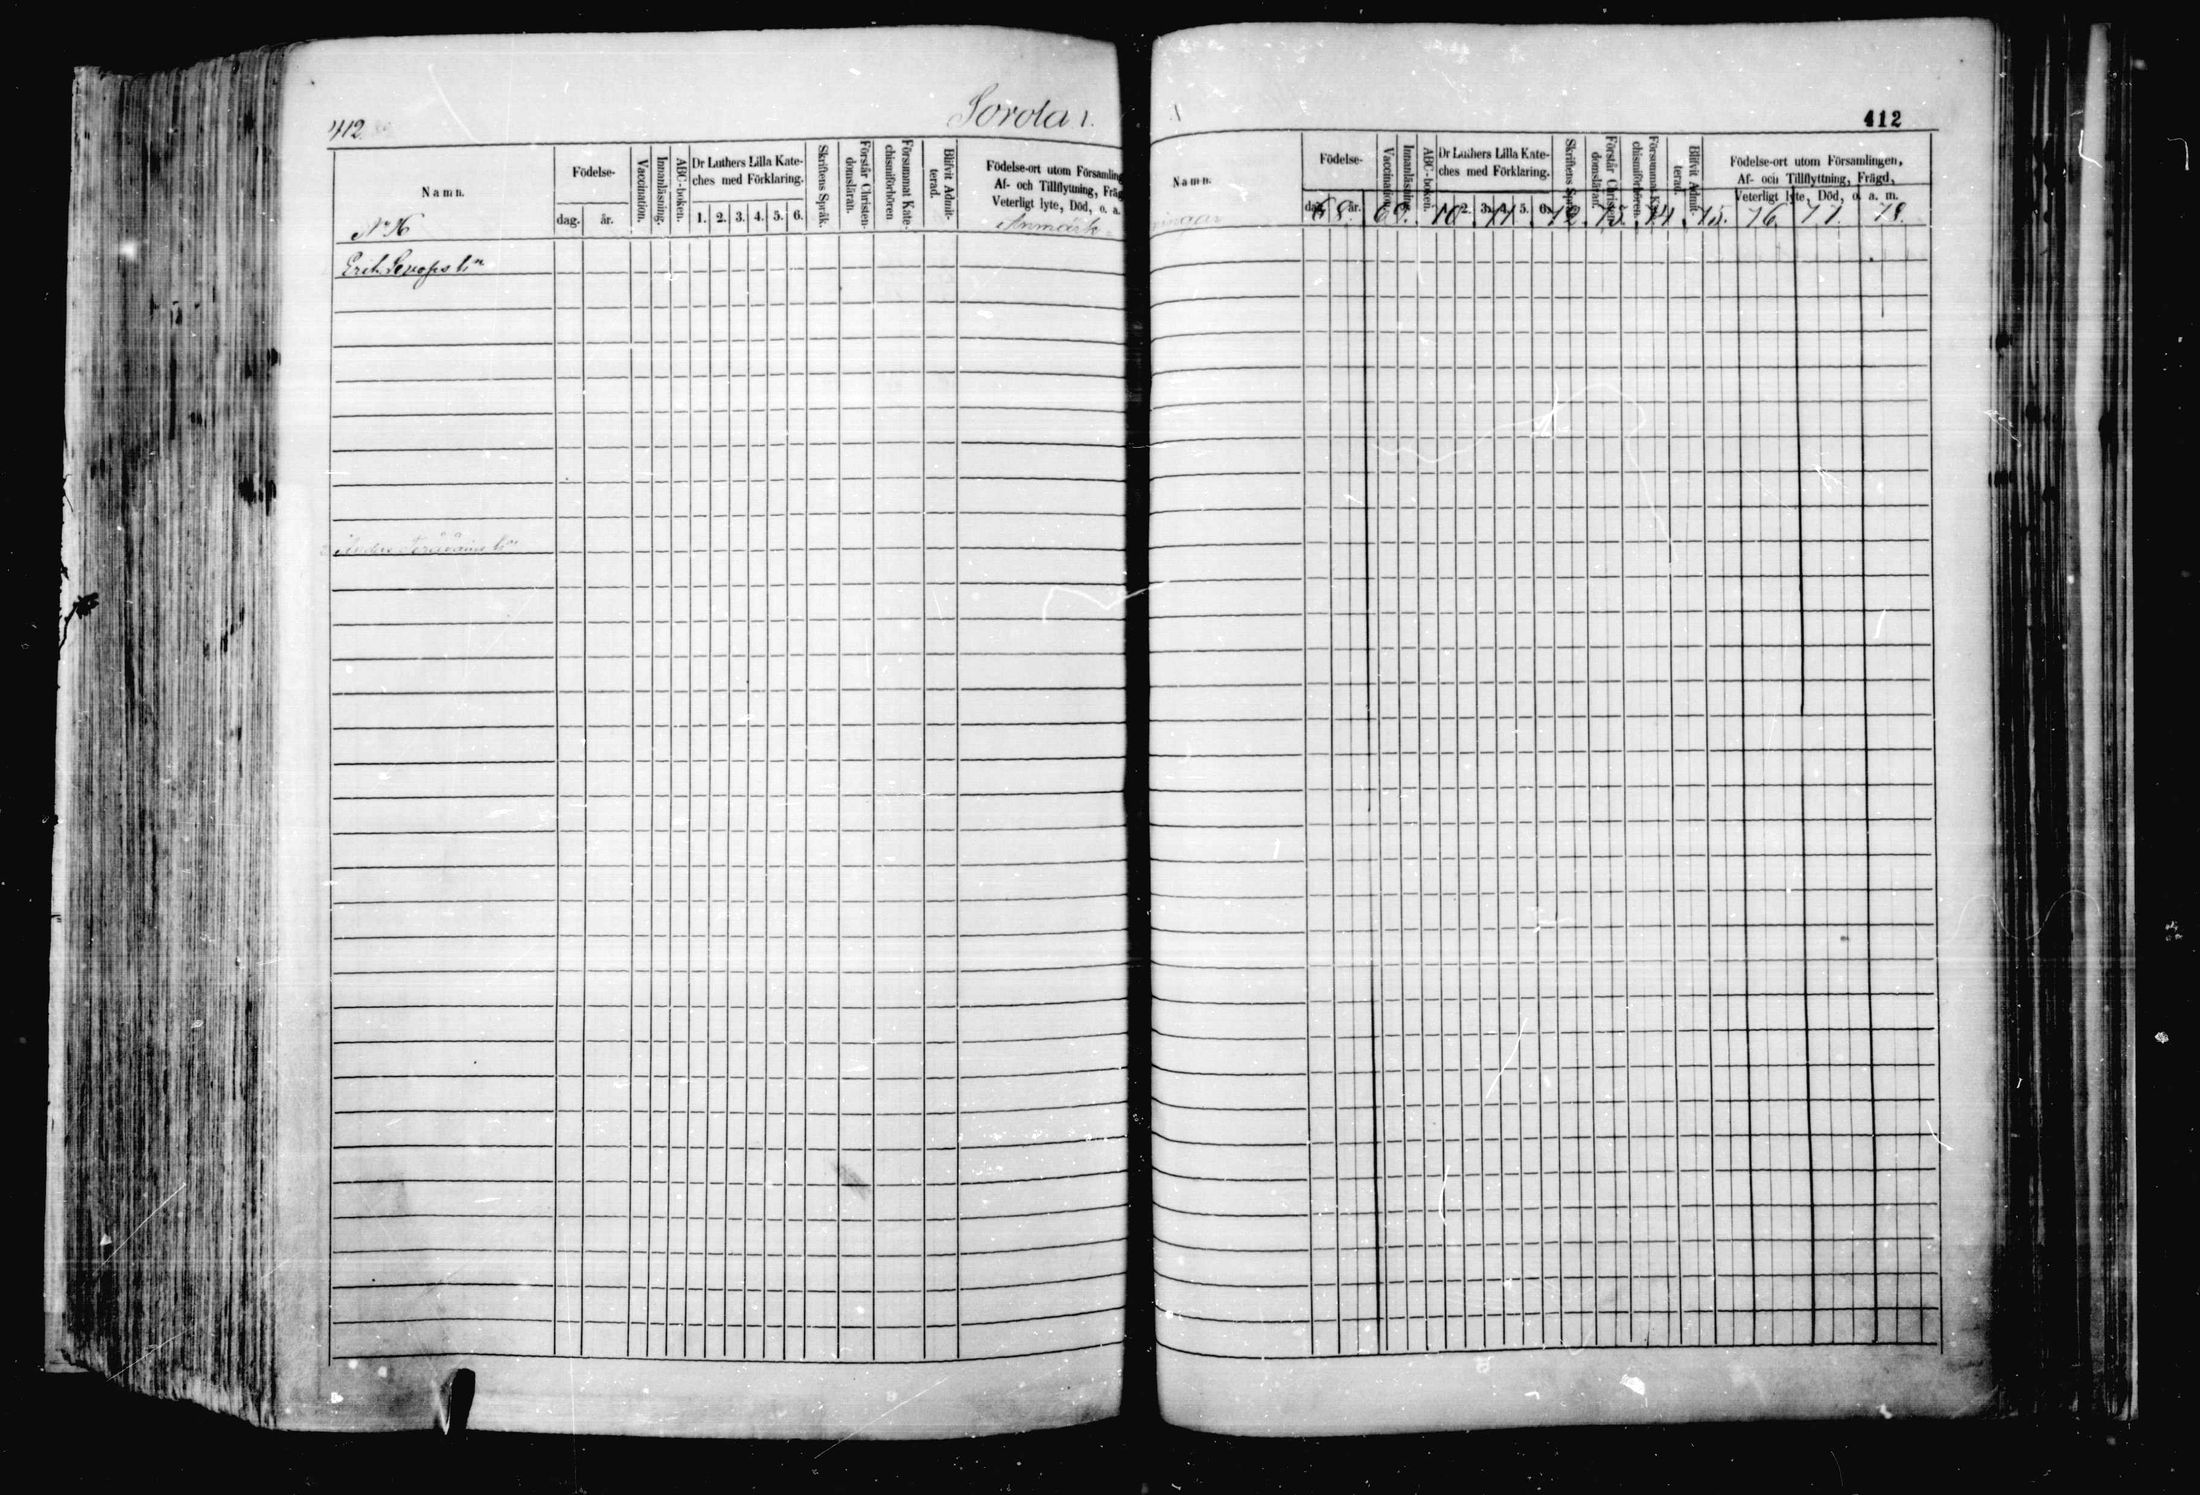 412.
412
Namn.
Födelse-
dag.
år.
Vaccination.
Innanläsning.
ABC-boken.
Dr Luthers Lilla Kate-
ches med Förklaring.
1. 2. 3. 4. 5. 6.
Skriftens Språk.
Förstår Christen-
domsläran.
Försummat Kate-
chismiförhören
Blifvit Admit-
terad.
Födelse-ort utom Församling
Af- och Tillflyttning, Fräg
Veterligt lyte, Död, o. a.
Anmärk
Erik
Namn.
ningar
Födelse-
dag.
år.
Vaccination.
Innanläsning.
ABC-boken.
Dr Luthers Lilla Kate-
ches med Förklaring.
2. 3. 4. 5. 6.
Skriftens Språk.
Förstår Christen-
domsläran.
Försummat Kate-
chismiförhören.
Blifvit Admit-
terad.
Födelse-ort utom Församlingen,
Af- och Tillflyttning, Frägd,
Veterligt lyte, Död, o. a. m.
68. 69. 70. 71. 72. 73. 74. 75. 76. 77. 78.